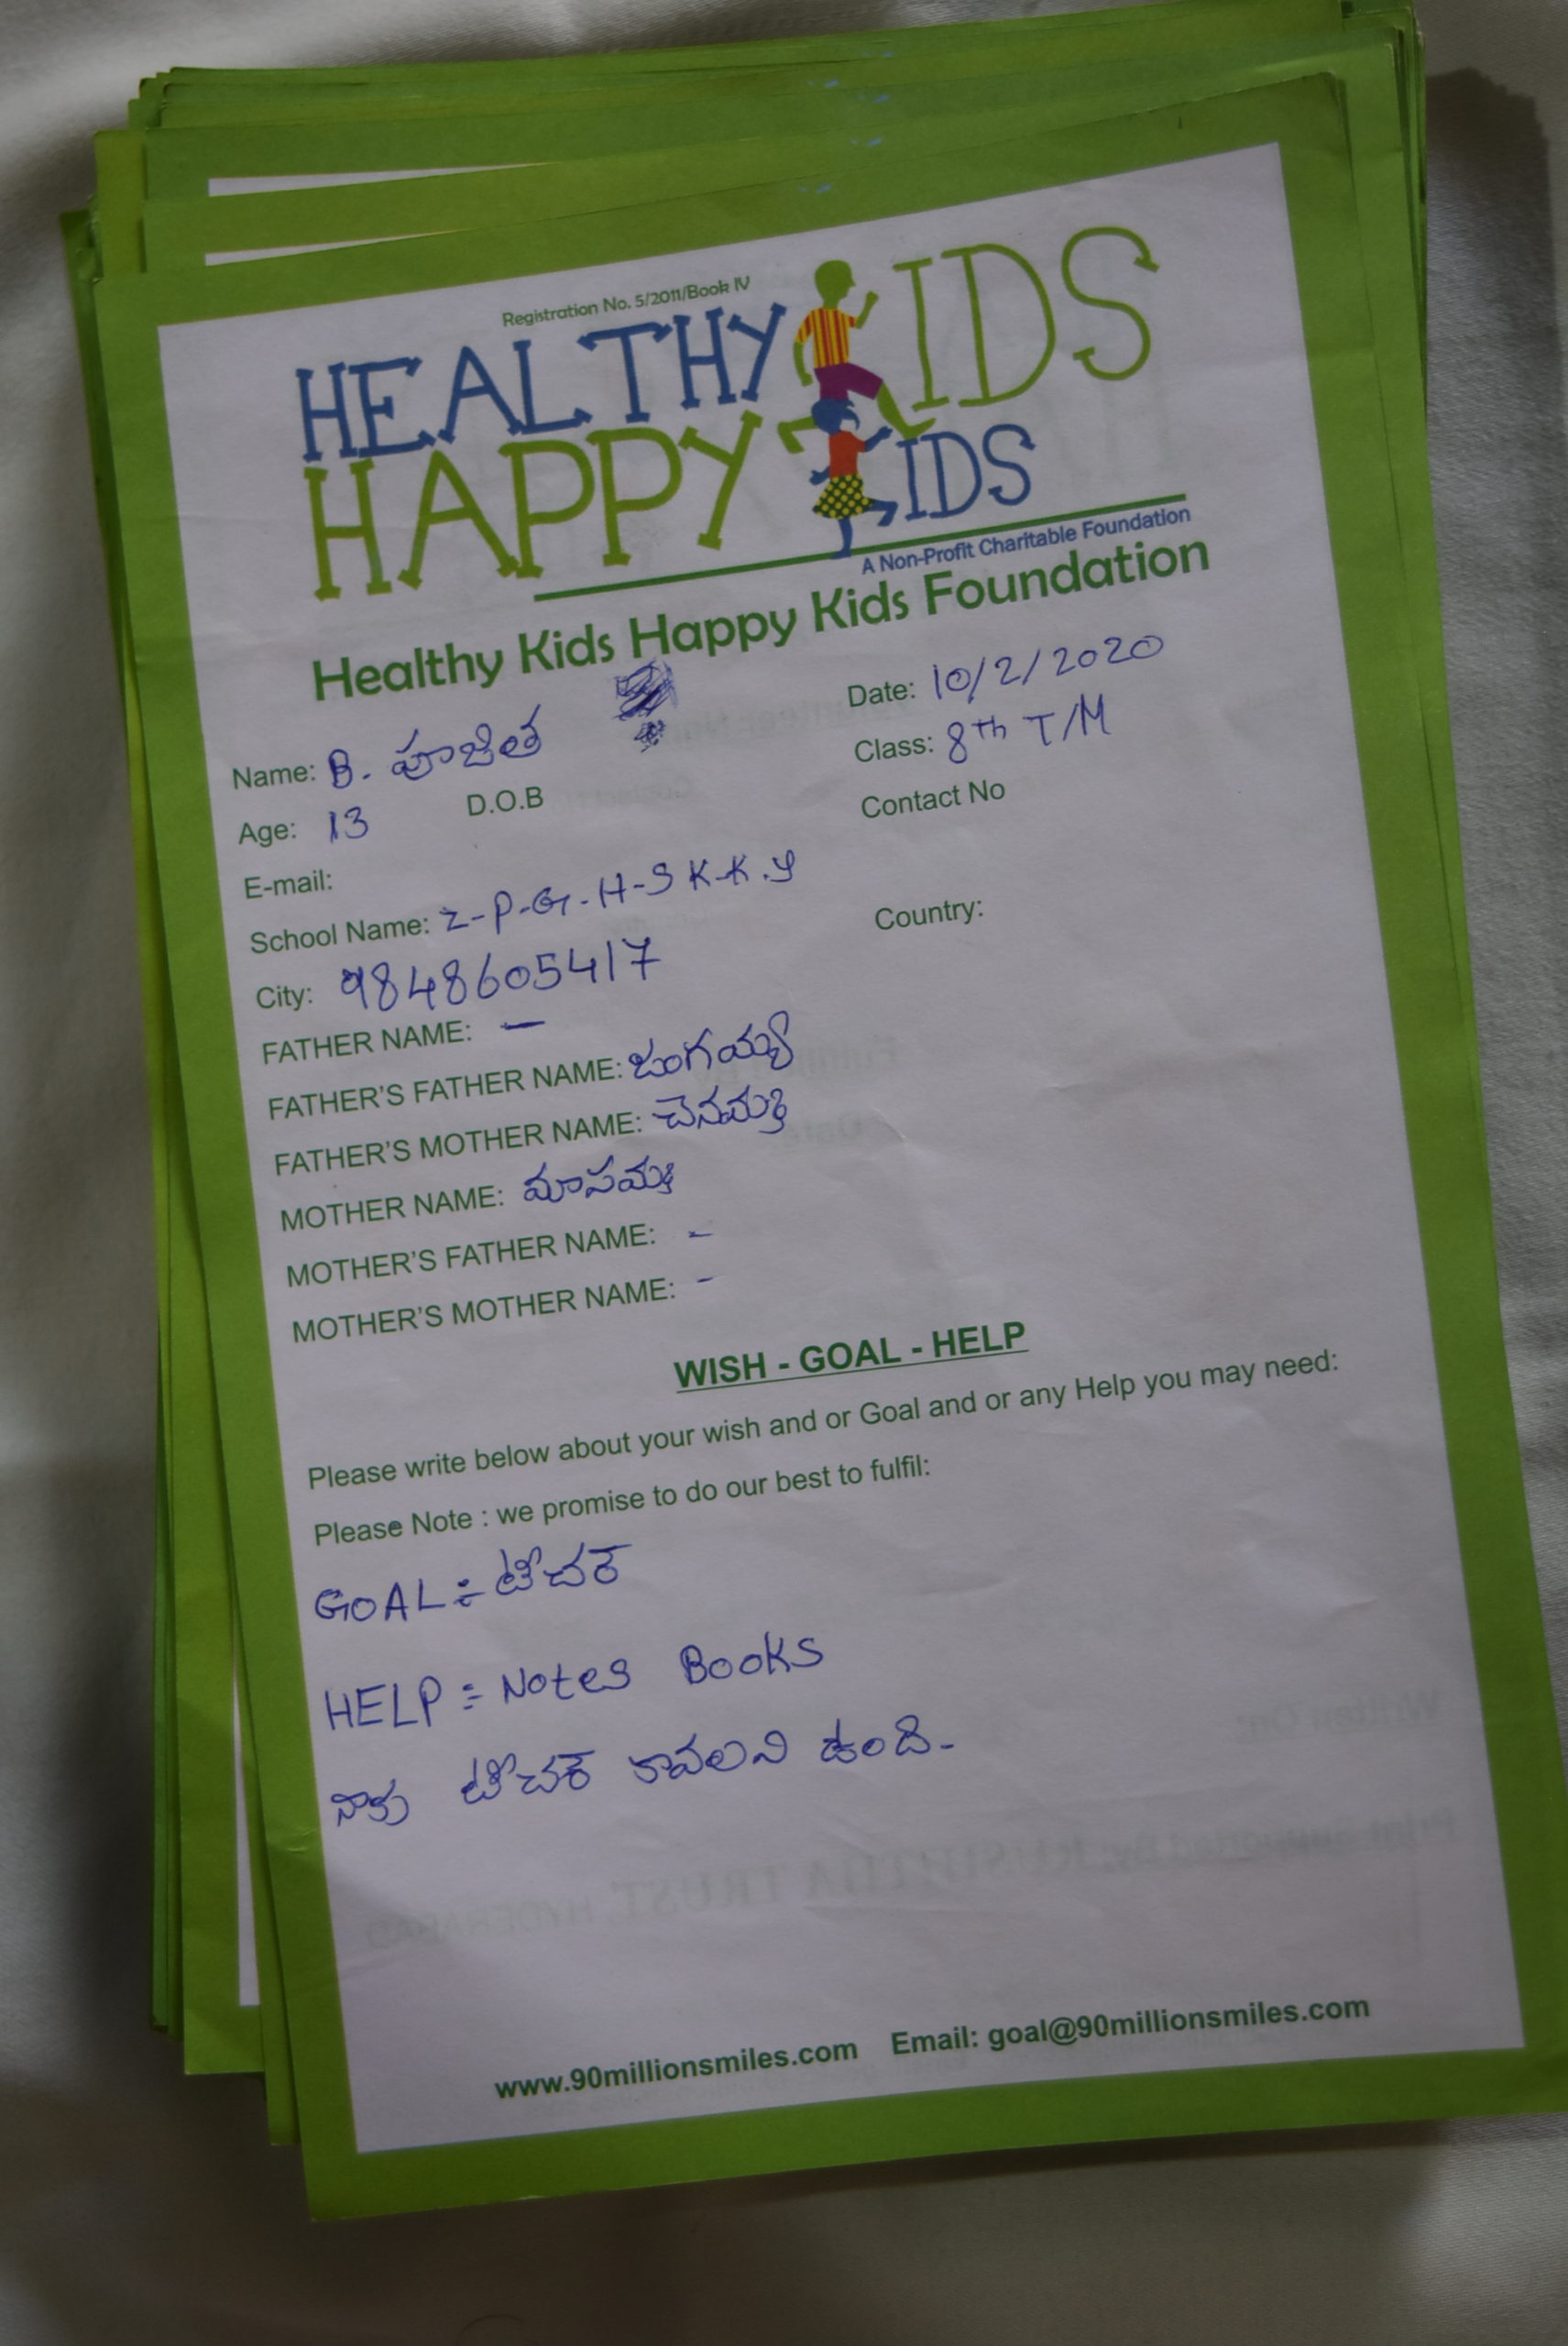 Registration No. 5/2011/Book IV
HEALTHY KIDS
HAPPY KIDS
A Non-Profit Charitable Foundation
Healthy Kids Happy Kids Foundation
Name: B. పూజిత Date: 10/2/2020
Age: 13 D.O.B Class: 8th T/M
E-mail: Contact No
School Name: Z-P-G-H-S K.K.Y
City: 9848605417 Country:
FATHER NAME: —
FATHER'S FATHER NAME: జంగయ్య
FATHER'S MOTHER NAME: చెనమ్మ
MOTHER NAME: మాసమ్మ
MOTHER'S FATHER NAME: -
MOTHER'S MOTHER NAME: -
WISH - GOAL - HELP
Please write below about your wish and or Goal and or any Help you may need:
Please Note : we promise to do our best to fulfil:
GOAL:- టీచర్
HELP:- Notes Books
నాకు టీచర్ కావలని ఉంది.
www.90millionsmiles.com Email: goal@90millionsmiles.com